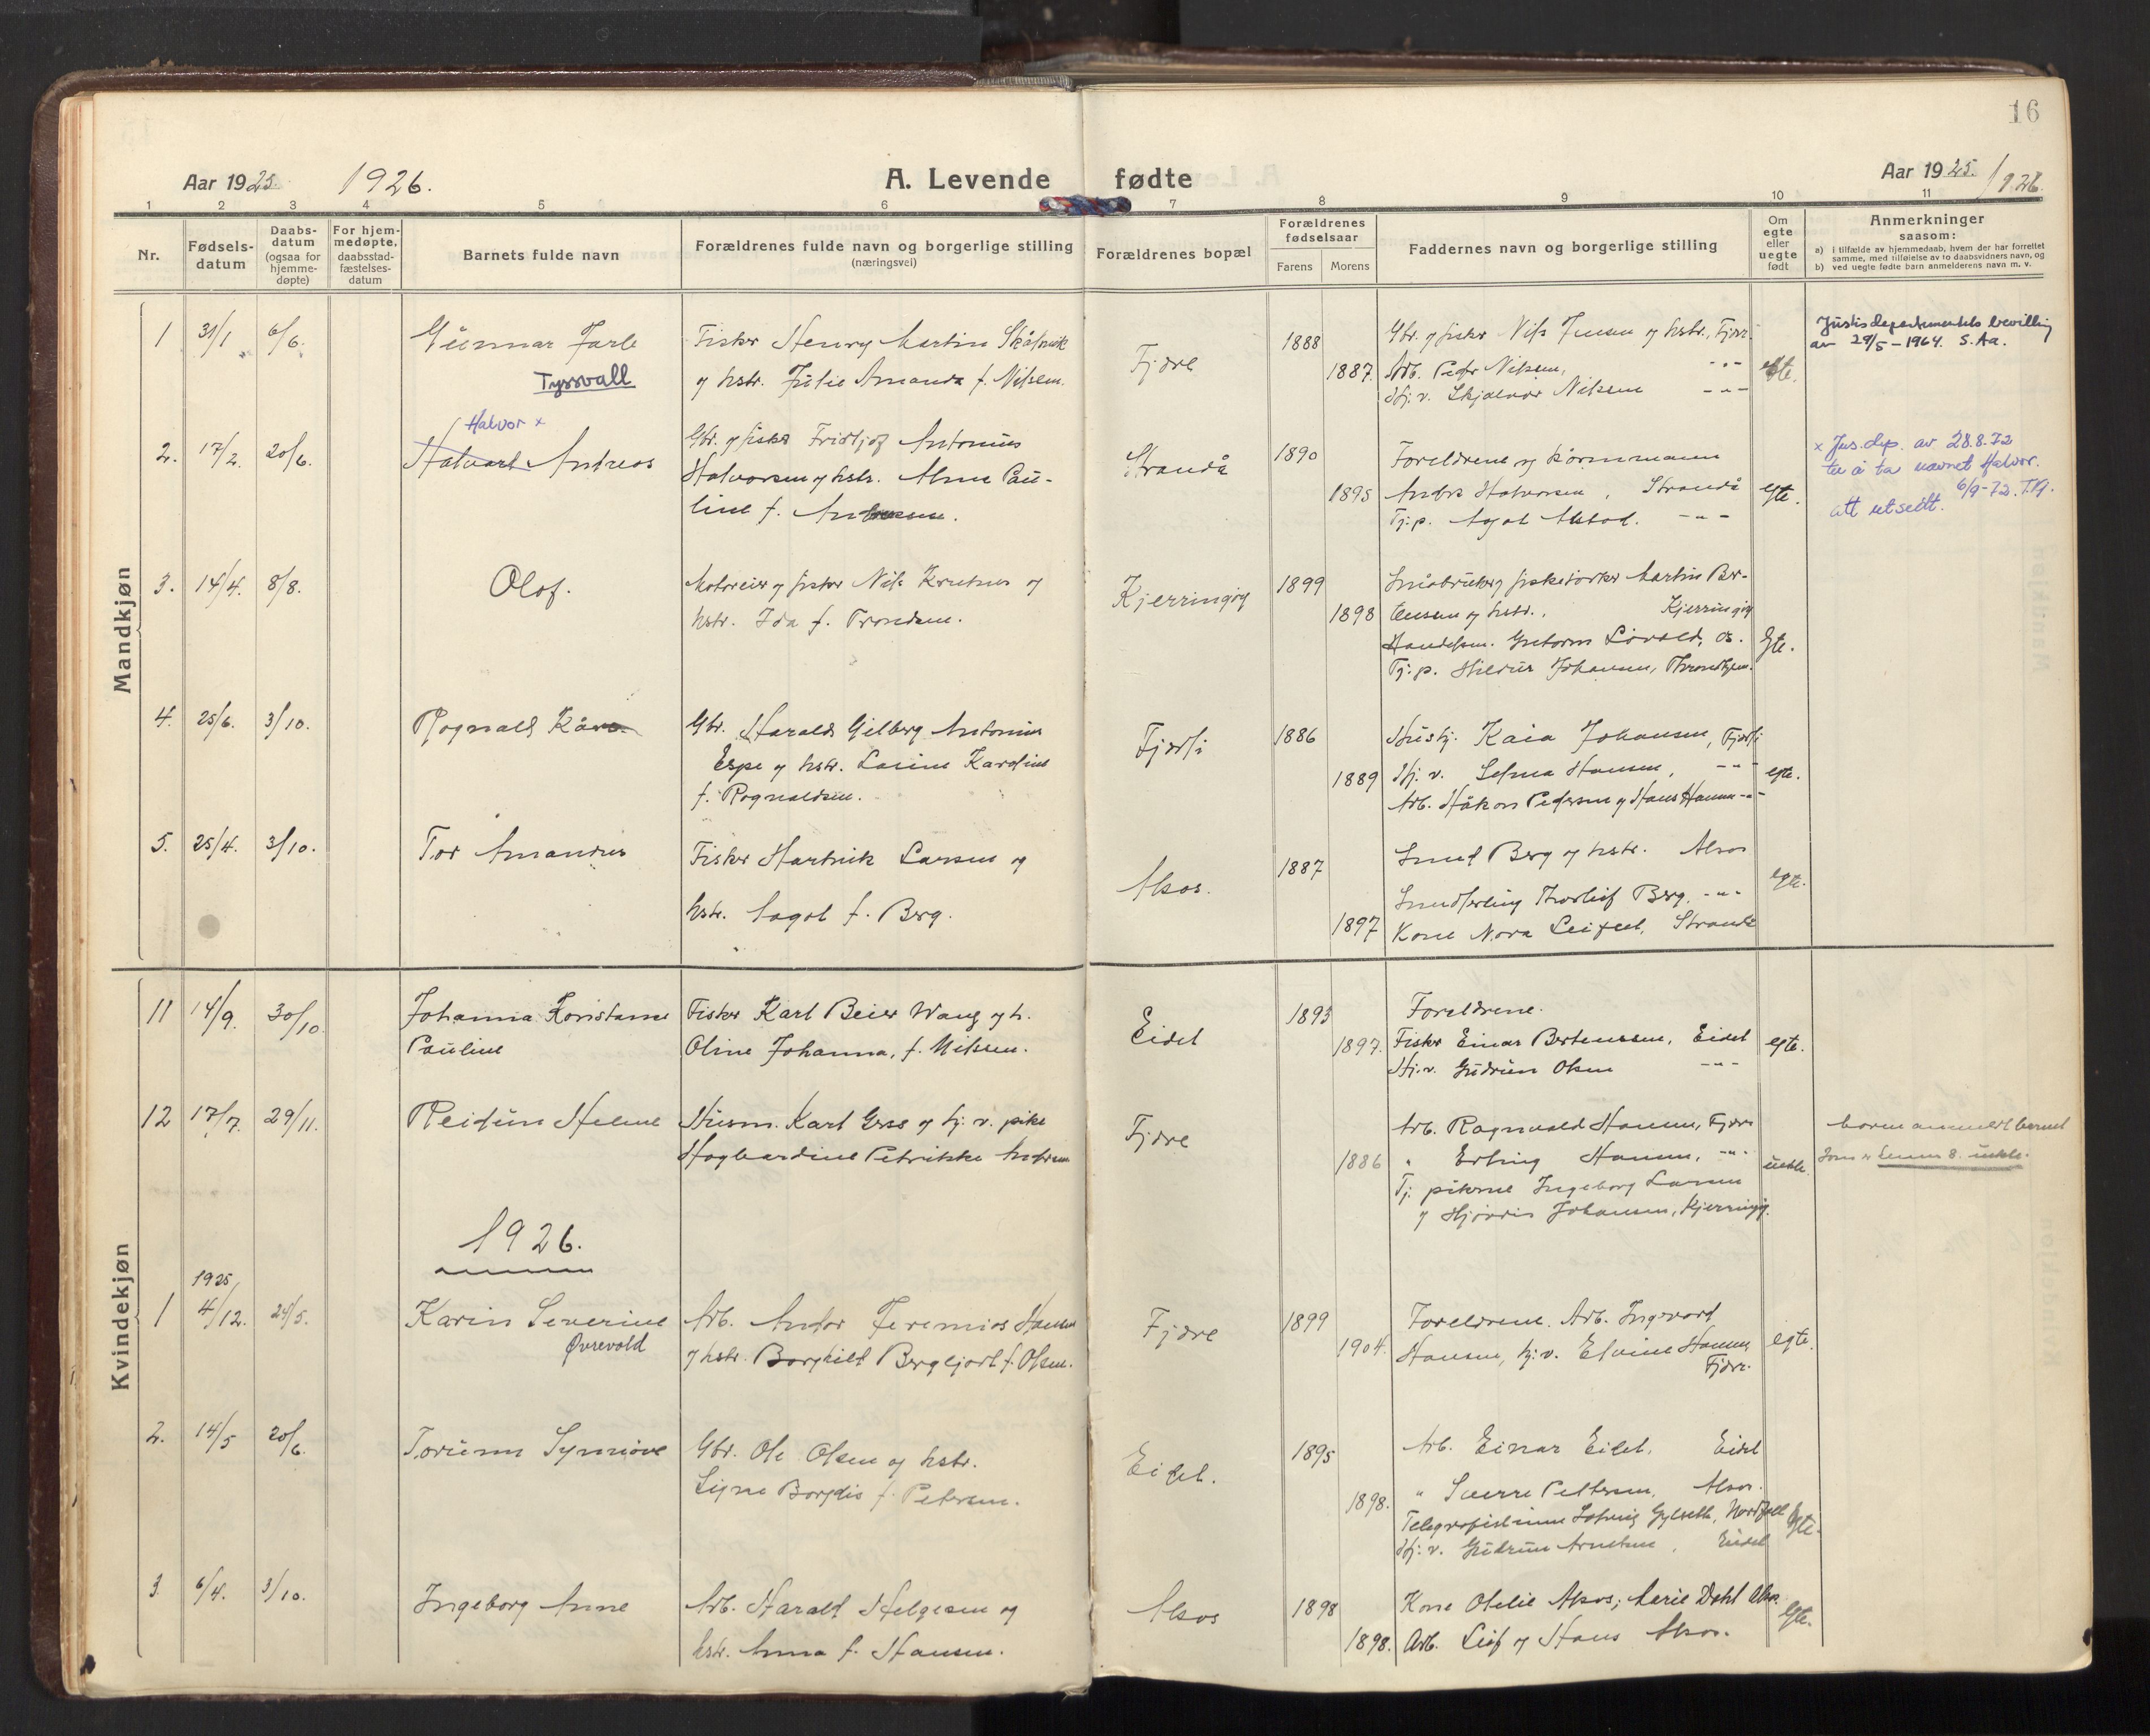 16
Aar 1925. 1926.
A. Levende fødte
Aar 1925. / 1926.
1 2 3 4 5 6 7 8 9 10 11
Nr.
Fødsels-
datum
Daabs-
datum
(ogsaa for
hjemme-
døpte)
For hjem-
medøpte,
daabsstad-
fæstelses-
datum
Barnets fulde navn
Forældrenes fulde navn og borgerlige stilling
(næringsvei)
Forældrenes bopæl
Forældrenes
fødselsaar
Farens Morens
Faddernes navn og borgerlige stilling
Om
egte
eller
uegte
født
Anmerkninger
saasom:
a) i tilfælde av hjemmedaab, hvem der har forrettet
samme, med tilføielse av to daabsvidners navn, og
b) ved uegte fødte barn anmelderens navn m. v.
Mandkjøn
1 31/1 6/6.
Gunnar Jarle
Tyssvall
Fisker Henry Martin Skålsvik
og hstr. Julie Amanda f. Nilsen.
Fjære
1888
1887.
Gbr. og fisker Nils Jensen og hstr., Fjære
Arb. Peder Nilsen, -"-
Hj. v. Nilsen -"-
egte.
Justisdepartementets bevilling
av 29/5-1964. S. Aa.
2. 17/2. 20/6.
Halvor x
Halvart Andreas
Gbr. og fisker Fridtjof Antonius
Halvorsen og hstr. Alma Pau-
line f.
Strandå
1890
1895
Foreldrene og
Halvorsen, Strandå
Tj.p. Agot -"-
egte.
x Jus.dep. av 28.8.72
til å ta navnet Halvor.
6/9-72.
att utsedt.
3. 14/4. 8/8.
Olof.
Motoreier og fisker Nils Knutsen og
hstr. Ida f. Trondsen.
Kjerringøy
1899
1898
Småbruker og fisker Martin Ber-
tensen og hstr., Kjerringøy
Handelsm. Løvold, Os.
Tj.p. Hildur Johansen, Throndhjem.
Egte.
4. 25/6. 3/10.
Rognald Kåre
Gbr. Harald Gilberg Antonius
Espe og hstr. Karoline
f. Rognaldsen.
Fjærli
1886
1889
Hushj. Kaia Johansen, Fjærli
Hj. v. Selma Hansen, -"-
Arb. Håkon Pedersen og Hans Hansen -"-
egte.
5. 25/4. 3/10.
Tor Amandus
Fisker Hartvik Larsen og
hstr. Aagot f. Berg.
Alsos.
1887
1897
Smed Berg og hstr. Alsos
Smedlærling Thorleif Berg, -"-
Kone Nora Leifset, Strandå
egte.
Kvindekjøn
11 14/9. 30/10.
Johanna Konstanse
Pauline
Fisker Karl Beier Wang og h.
Oline Johanna, f. Nilsen.
Eidet
1893
1897.
Foreldrene.
Fisker Einar Bertenssen, Eidet
Hj.v. Gudrun Olsen -"-
egte.
12 17/7. 29/11.
Reidun Helene
Husm. Karl og hj. v. pike
Hagbardine Petrikke
Fjære
1886
Arb. Ragnvald Hansen, Fjære
" Erling Hansen, -"-
Tj. pikerne Ingeborg Larsen
og Hjørdis Johansen, Kjerringøy.
uekte.
anmeldt barnet
som
1926.
1925
1 4/12. 24/5.
Karin Severine
Øvrevold
Arb. Jeremias Hansen
og hstr. Borghild Bergljot f. Olsen.
Fjære
1899
1904.
Foreldrene. Arb. Ingvard
Hansen, hj.v. Elvine Hansen,
Fjære.
egte.
2. 14/5 20/6.
Torunn Synnøve
Gbr. Ole Olsen og hstr.
Signe Borgdis f. Petersen.
Eidet.
1895
1898.
Arb. Einar Eidet, Eidet
" Sverre Pettersen, Alsos.
Telegrafistinne Solveig Gylseth,
Hj. v. Gudrun Arntsen, Eidet
Egte.
3 6/4. 3/10.
Ingeborg Anne
Arb. Harald Helgesen og
hstr. Anna f. Hansen.
Alsos
1898
1898.
Kone Otelie Alsos; Marie Dahl Alsos.
Arb. Leif og Hans Alsos.
egte.